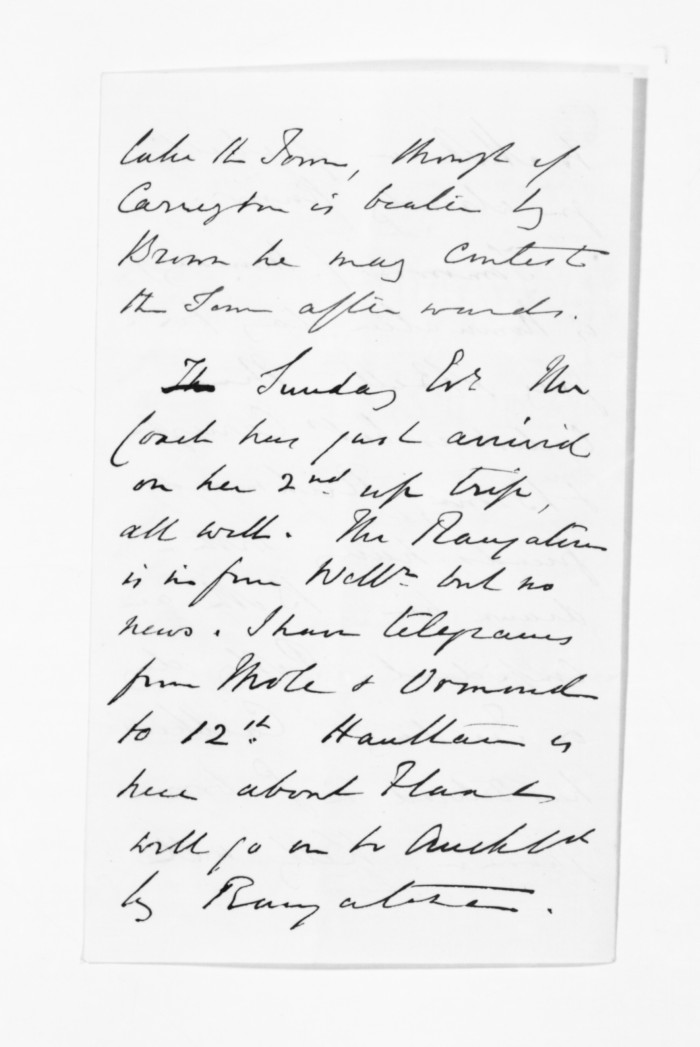 take the Town, though if
Carrington is beaten by
Brown he may contest
the Town after wards.
The Sunday Evg The
Coach has just arrived
on her 2nd up trip,
all well. The Rangatira
is in from Welln but no
news. I have telegrams
from Whole & Ormond
to 12th. Haultain is
here about Flax &
will go on to Auckld
by Rangatira.